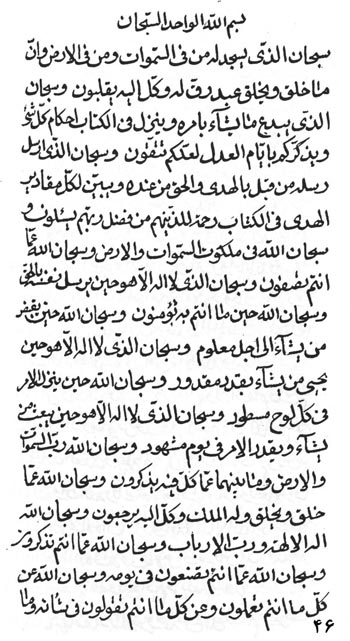 بسم الله الواحد السبحان
سبحان الذی یسجد له من فی السموات ومن فی الارض وان
ما خلق ویخلق عبد رق له وکل الیه یقلبون وسبحان
الذی یبدع ما یشآء بامره وینزل فی الکتاب احکام کل شیء
ویذکرکم بایام العدل لعلکم تتقون وسبحان الذی ارسل
رسله من قبل بالهدی والحق من عنده ویبین لکل مقادیر
الهدی فی الکتاب رحمة للذینهم من فضل ربهم یسئلون و
سبحان الله فی ملکوت السموات والارض وسبحان الله عما
انتم تصفون وسبحان الذی لا اله الا هو حین یرسل نفسه بالحق
وسبحان الله حین ما انتم به تؤمنون وسبحان الله حین یغفر
من یشآء الی اجل معلوم وسبحان الذی لا اله الا هو حین
یحیی من یشآء بقدر مقدور وسبحان الله حین ینزل الامر
فی کل لوح مسطور وسبحان الذی لا اله الا هو حین یبعث من
یشآء ویقدر الامر فی یوم مشهود وسبحان الله رب السموات
والارض وما بینهما عما کل فیه یذکرون وسبحان الله عما
خلق ویخلق وله الملک وکل الیه یرجعون وسبحان الله
اله الالهة ورب الارباب وسبحان الله عما انتم تذکرون
وسبحان الله عما انتم تصنعون فی یومه وسبحان الله عن
کل ما انتم تعملون وعن کل ما انتم تقولون فی شانه وما
۴۶